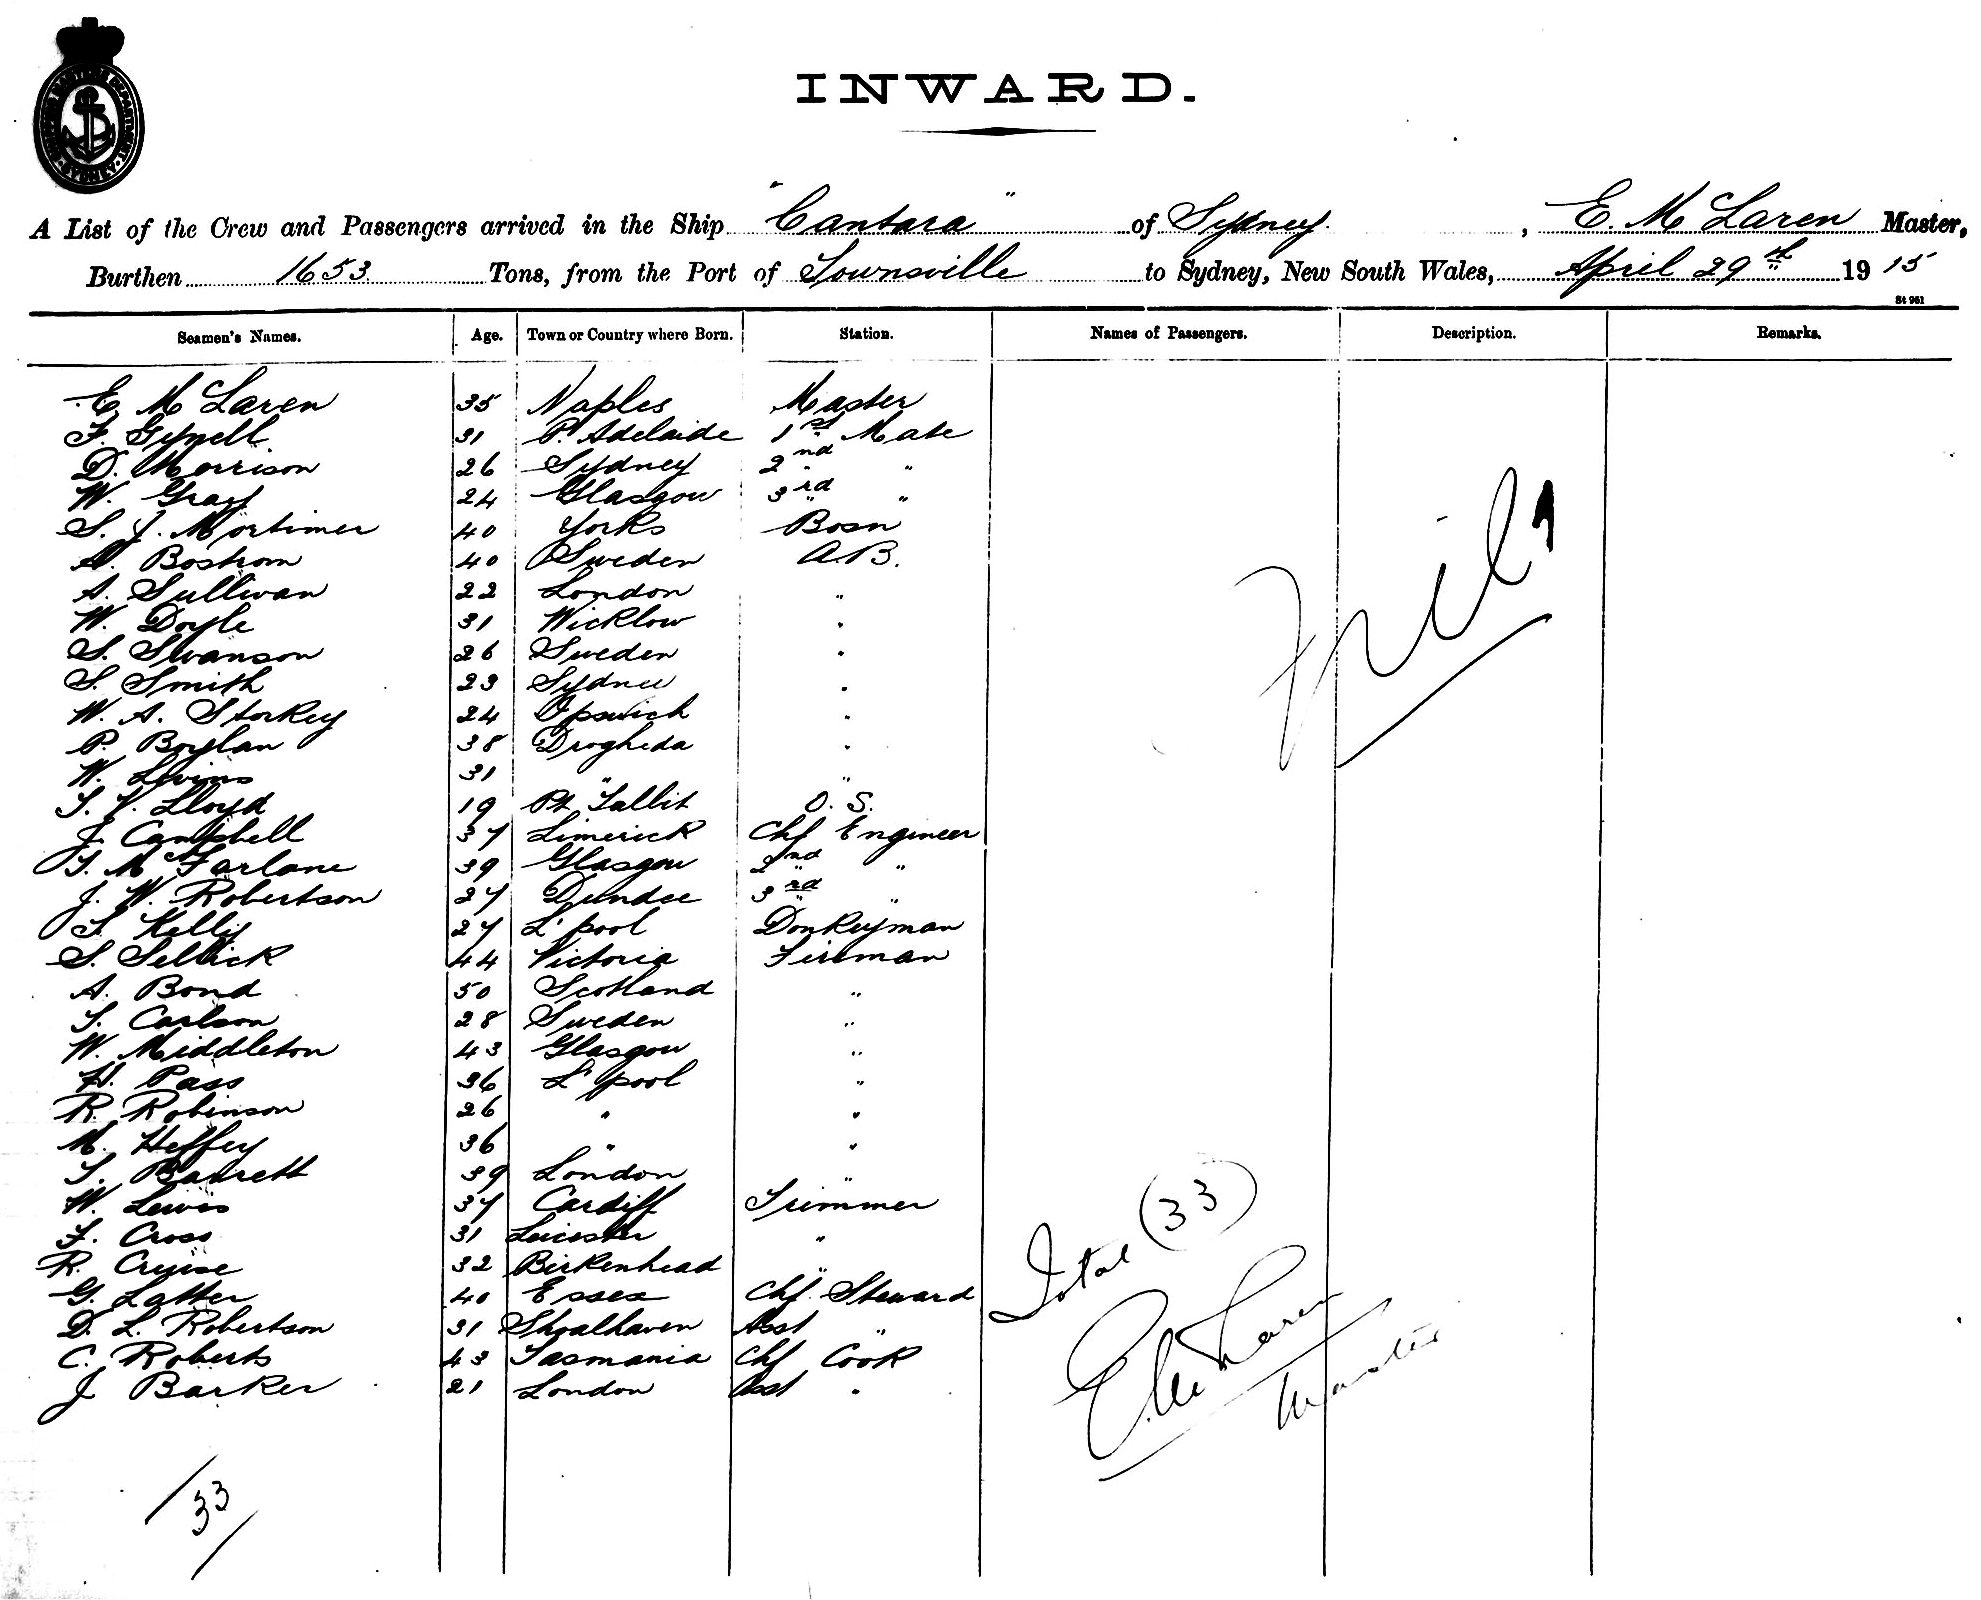 SHIPPING MASTERS DEPARTMENT SYDNEY
INWARD.
A List of the Crew and Passengers arrived in the Ship "Cantara" of Sydney, E. McLaren Master,
Burthen 1653 Tons, from the Port of Townsville to Sydney, New South Wales, April 29th 1915
St 961
Seamen's Names. Age. Town or Country where Born. Station. Names of Passengers. Description. Remarks.
E. McLaren 35 Naples Master
F. Gynell 31 P. Adelaide 1st Mate
D. Morrison 26 Sydney 2nd "
W. Gray 24 Glasgow 3rd "
S. J. Mortimer 40 Yorks Bosn
Bostrom 40 Sweden A.B.
A. Sullivan 22 London "
W. Doyle 31 Wicklow "
S. Swanson 26 Sweden "
S. Smith 23 Sydney "
W. A. Storkey 24 Ipswich "
P. Boylan 38 Drogheda "
W. Levins 31 " "
T. V. Lloyd 19 Pt Tallit O. S.
J. Campbell 37 Limerick Chf Engineer
T. McFarlane 39 Glasgow 2nd "
J. W. Robertson 27 Dundee 3rd "
T. Kelly 27 L'pool Donkeyman
S. Sellick 44 Victoria Fireman
A. Bond 50 Scotland "
T. Carlson 28 Sweden "
W. Middleton 43 Glasgow "
H. Pass 36 L'pool "
R. Robinson 26 " "
M. Heffey 36 " "
T. Barrett 39 London "
W. Lewis 37 Cardiff Trimmer
F. Cross 31 Leicester "
R. Cruise 32 Birkenhead "
G. Latter 40 Essex Chf Steward
D. L. Robertson 31 Shoalhaven Asst "
C. Roberts 43 Tasmania Chf Cook
J Barker 21 London Asst "
/33/
Nil
Total (33)
E McLaren
Master